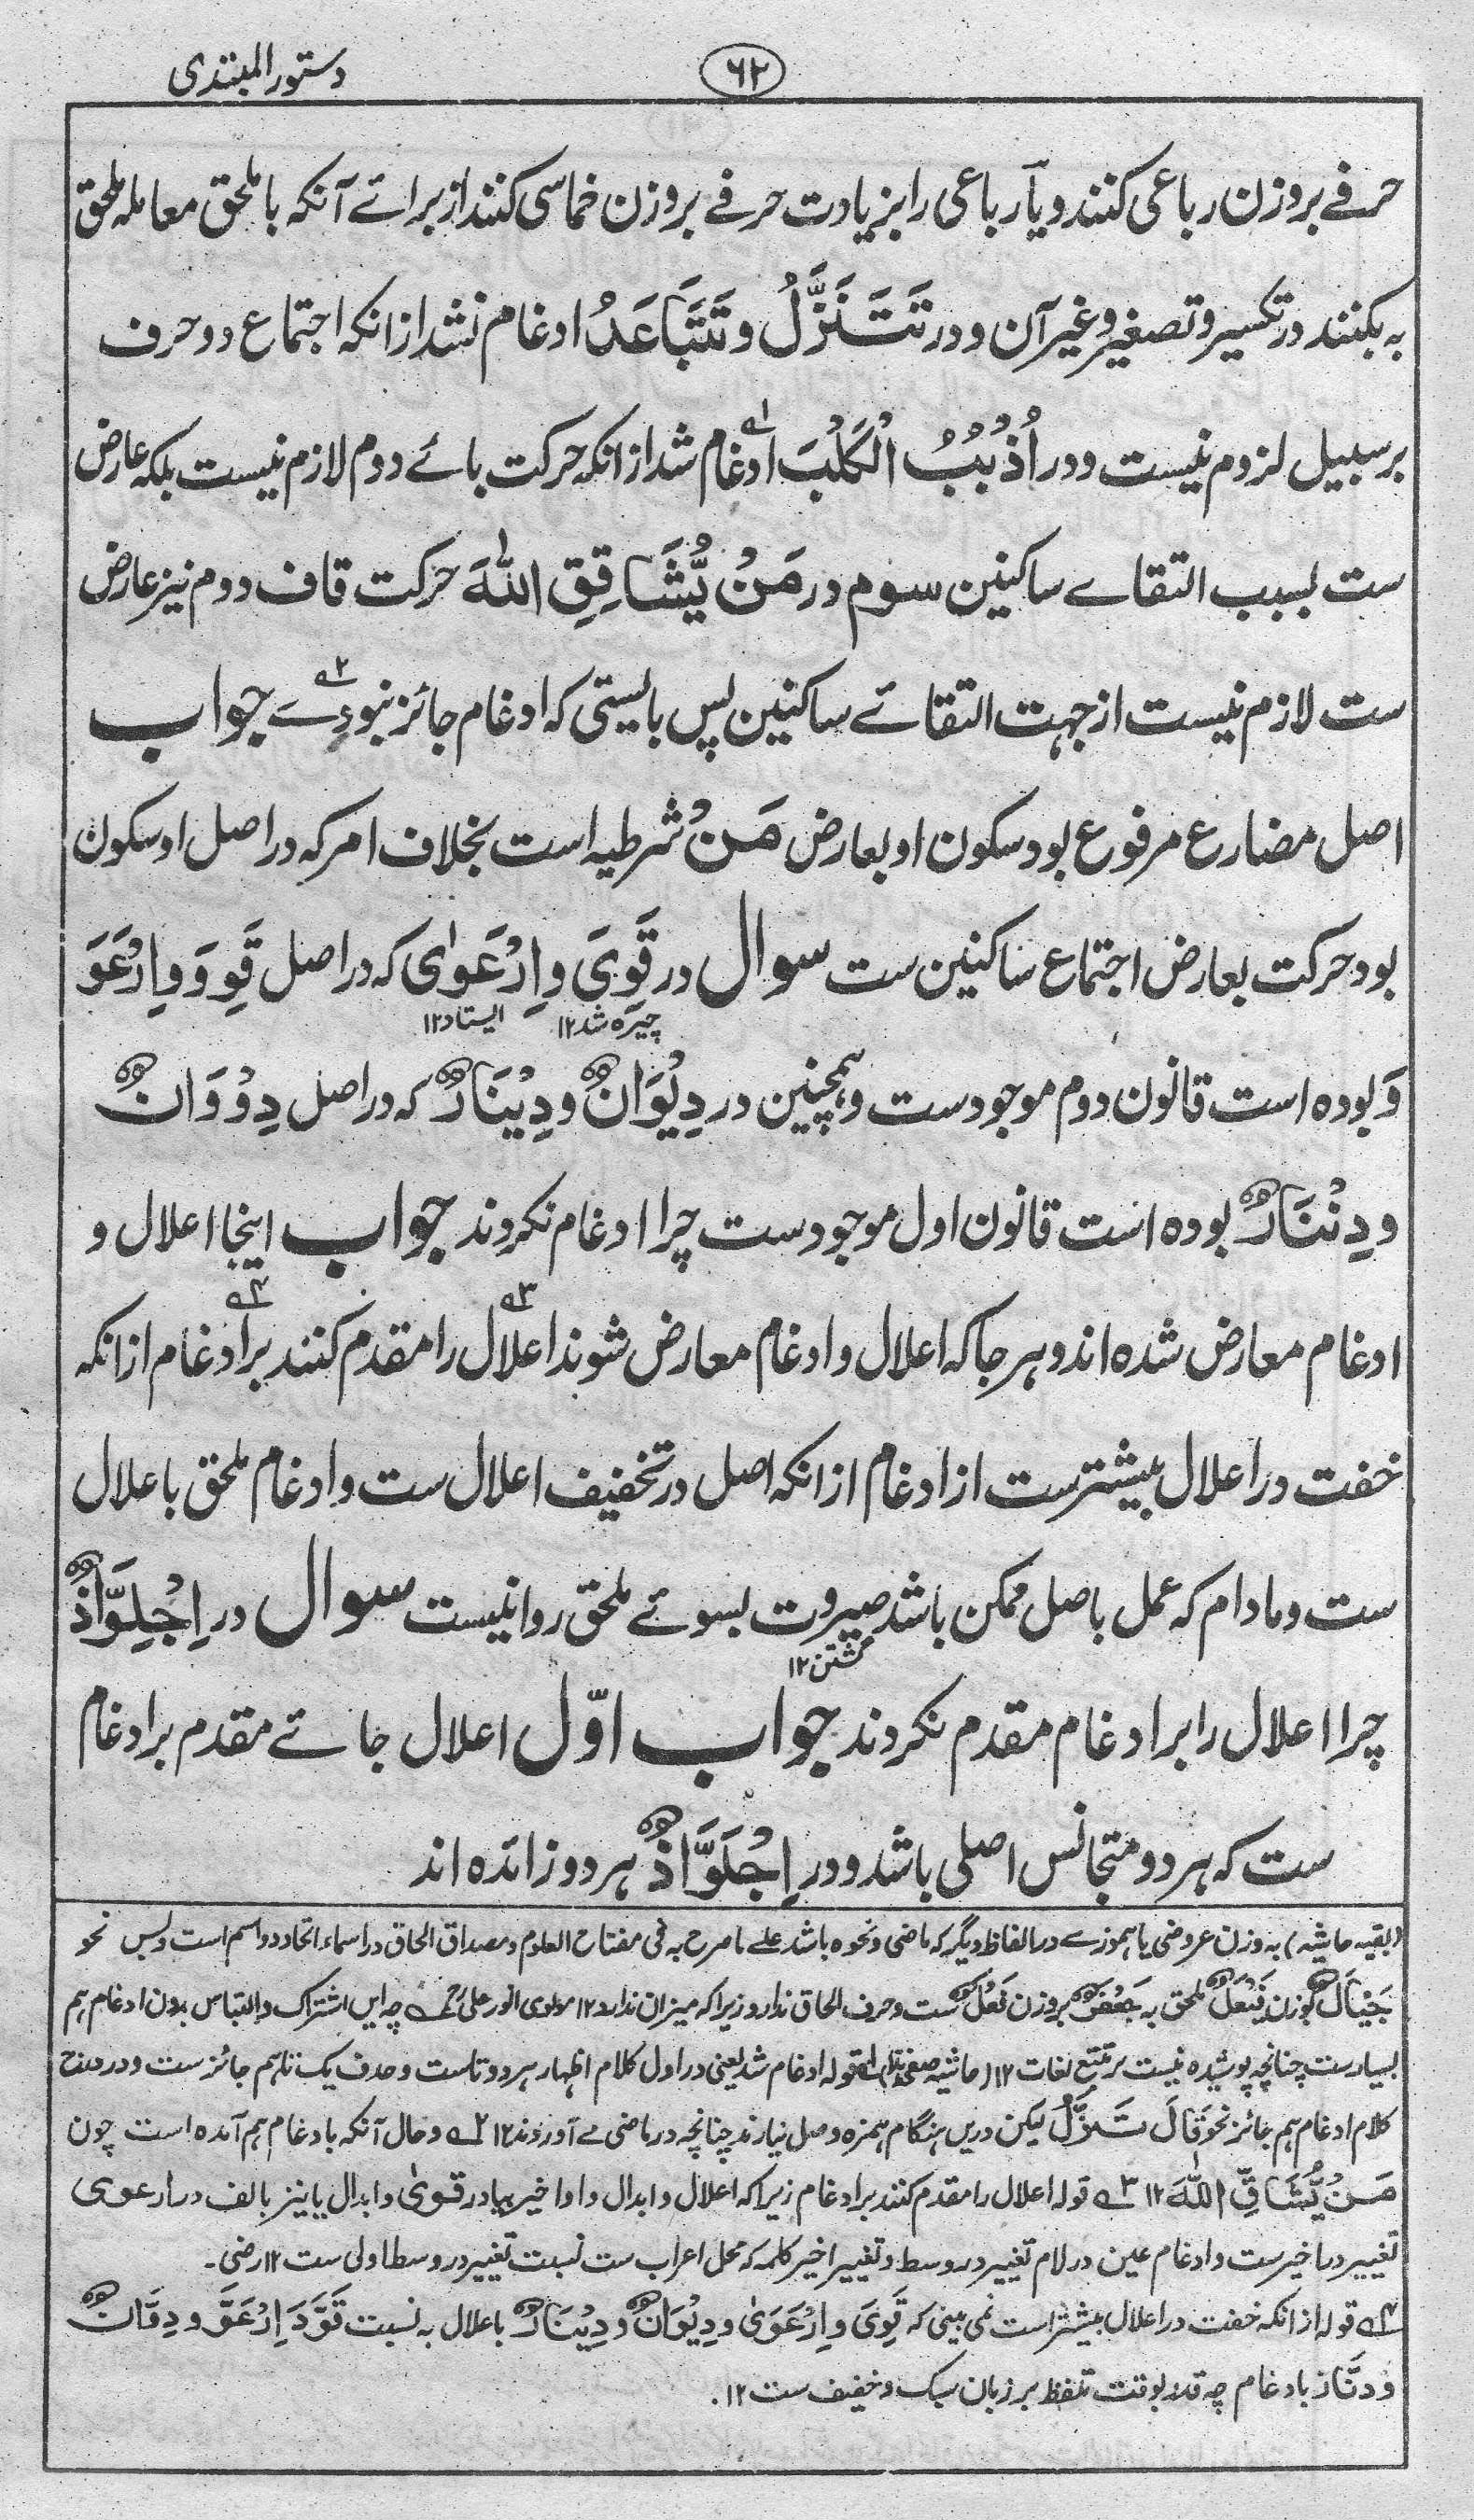 دستور المبتدی
۶۲
حرفے بروزن رباعی کنند و یا رباعی را بزیادت حرفے بروزن خماسی کنند از برائے آنکہ با ملحق معاملہ ملحق
بہ بکنند در تکسیر و تصغیر و غیر آن و در تَتَنَزَّلُ و تَتَبَاعَدُ ادغام نشد ازانکہ اجتماع دو حرف
بر سبیل لزوم نیست و در اُذْبُبُ الْکَلْبَ ادغام۱ شد ازانکہ حرکت بائے دوم لازم نیست بلکہ عارض
ست بسبب التقاے ساکنین سوم در مَنْ یُّشَاقِقِ اللّٰهَ حرکت قاف دوم نیز عارض
ست لازم نیست از جہت التقائے ساکنین پس بایستی کہ ادغام جائز نبودے۲ جواب
اصل مضارع مرفوع بود سکون او بعارض مَنْ شرطیہ است بخلاف امر کہ در اصل او سکون
بود حرکت بعارض اجتماع ساکنین ست سوال در قَوِیَ و اِرْعَوٰی کہ در اصل قَوِوَ و اِرْعَوَ
چیرہ شد۱۲ ایستاد۱۲
وَ بودہ است قانون دوم موجودست و ہمچنین در دِیْوَانٌ و دِیْنَارٌ کہ در اصل دِوْوَانٌ
و دِنْنَارٌ بودہ است قانون اول موجودست چرا ادغام نکردند جواب اینجا اعلال و
ادغام معارض شدہ اند و ہر جا کہ اعلال و ادغام معارض شوند اعلال۳ را مقدم کنند بر ادغام۴ ازانکہ
خفت در اعلال بیشترست از ادغام ازانکہ اصل در تخفیف اعلال ست و ادغام ملحق باعلال
ست و مادام کہ عمل باصل ممکن باشد صیرورت بسوئے ملحق روا نیست سوال در اِجْلِوَّاذٌ
گشتن۱۲
چرا اعلال را بر ادغام مقدم نکردند جواب اوّل اعلال جائے مقدم بر ادغام
ست کہ ہر دو متجانس اصلی باشد و در اِجْلِوَّاذٌ ہر دو زائدہ اند
(بقیہ حاشیہ) بہ وزن عروضی یا ہموزے در الفاظ دیگر کہ ماضی و نحوہ باشد علے ما صرح بہ فی مفتاح العلوم و مصداق الحاق در اسماء اتحاد دو اسم است و بس نحو
جَیْئَالٌ بوزن فَیْعَلٌ ملحق بہ جَعْفَرٌ بروزن فَعْلَلٌ ست و حرف الحاق ندارد زیرا کہ میزان ندارد ۱۲ مولوی انور علی چہ این اشتراک و التباس بدون ادغام ہم
بسیارست چنانچہ پوشیدہ نیست بر متتبع لغات ۱۲ (حاشیہ صفحہ ہذا) ۱ قولہ ادغام شد یعنی در اول کلام اظہار ہر دو تاست و حذف یک تا ہم جائز ست و در درج
کلام ادغام ہم جائز نحو قَالَ تَّنَزَّلُ لیکن دریں ہنگام ہمزہ وصل نیارند چنانچہ در ماضی مے آوردند ۱۲ ۲ و حال آنکہ با ادغام ہم آمدہ است چون
مَنْ یُّشَاقِّ اللّٰهَ ۱۲ ۳ قولہ اعلال را مقدم کنند بر ادغام زیرا کہ اعلال و ابدال واو اخیر بیا در قوی و ابدال یا نیز بالف در ارعوی
تغییر در اخیرست و ادغام عین در لام تغییر در وسط و تغییر اخیر کلمہ کہ محل اعراب ست نسبت تغییر در وسط اولی ست ۱۲ رضی۔
۴ قولہ ازانکہ خفت در اعلال بیشتر است نمی بینی کہ قَوِیَ و اِرْعَوٰی و دِیْوَانٌ و دِیْنَارٌ باعلال بہ نسبت قَوَّ وَ اِرْعَوَّ و دِوَّانٌ
و دِنَّار بادغام چہ قدر بوقت تلفظ بر زبان سبک و خفیف ست ۱۲۔